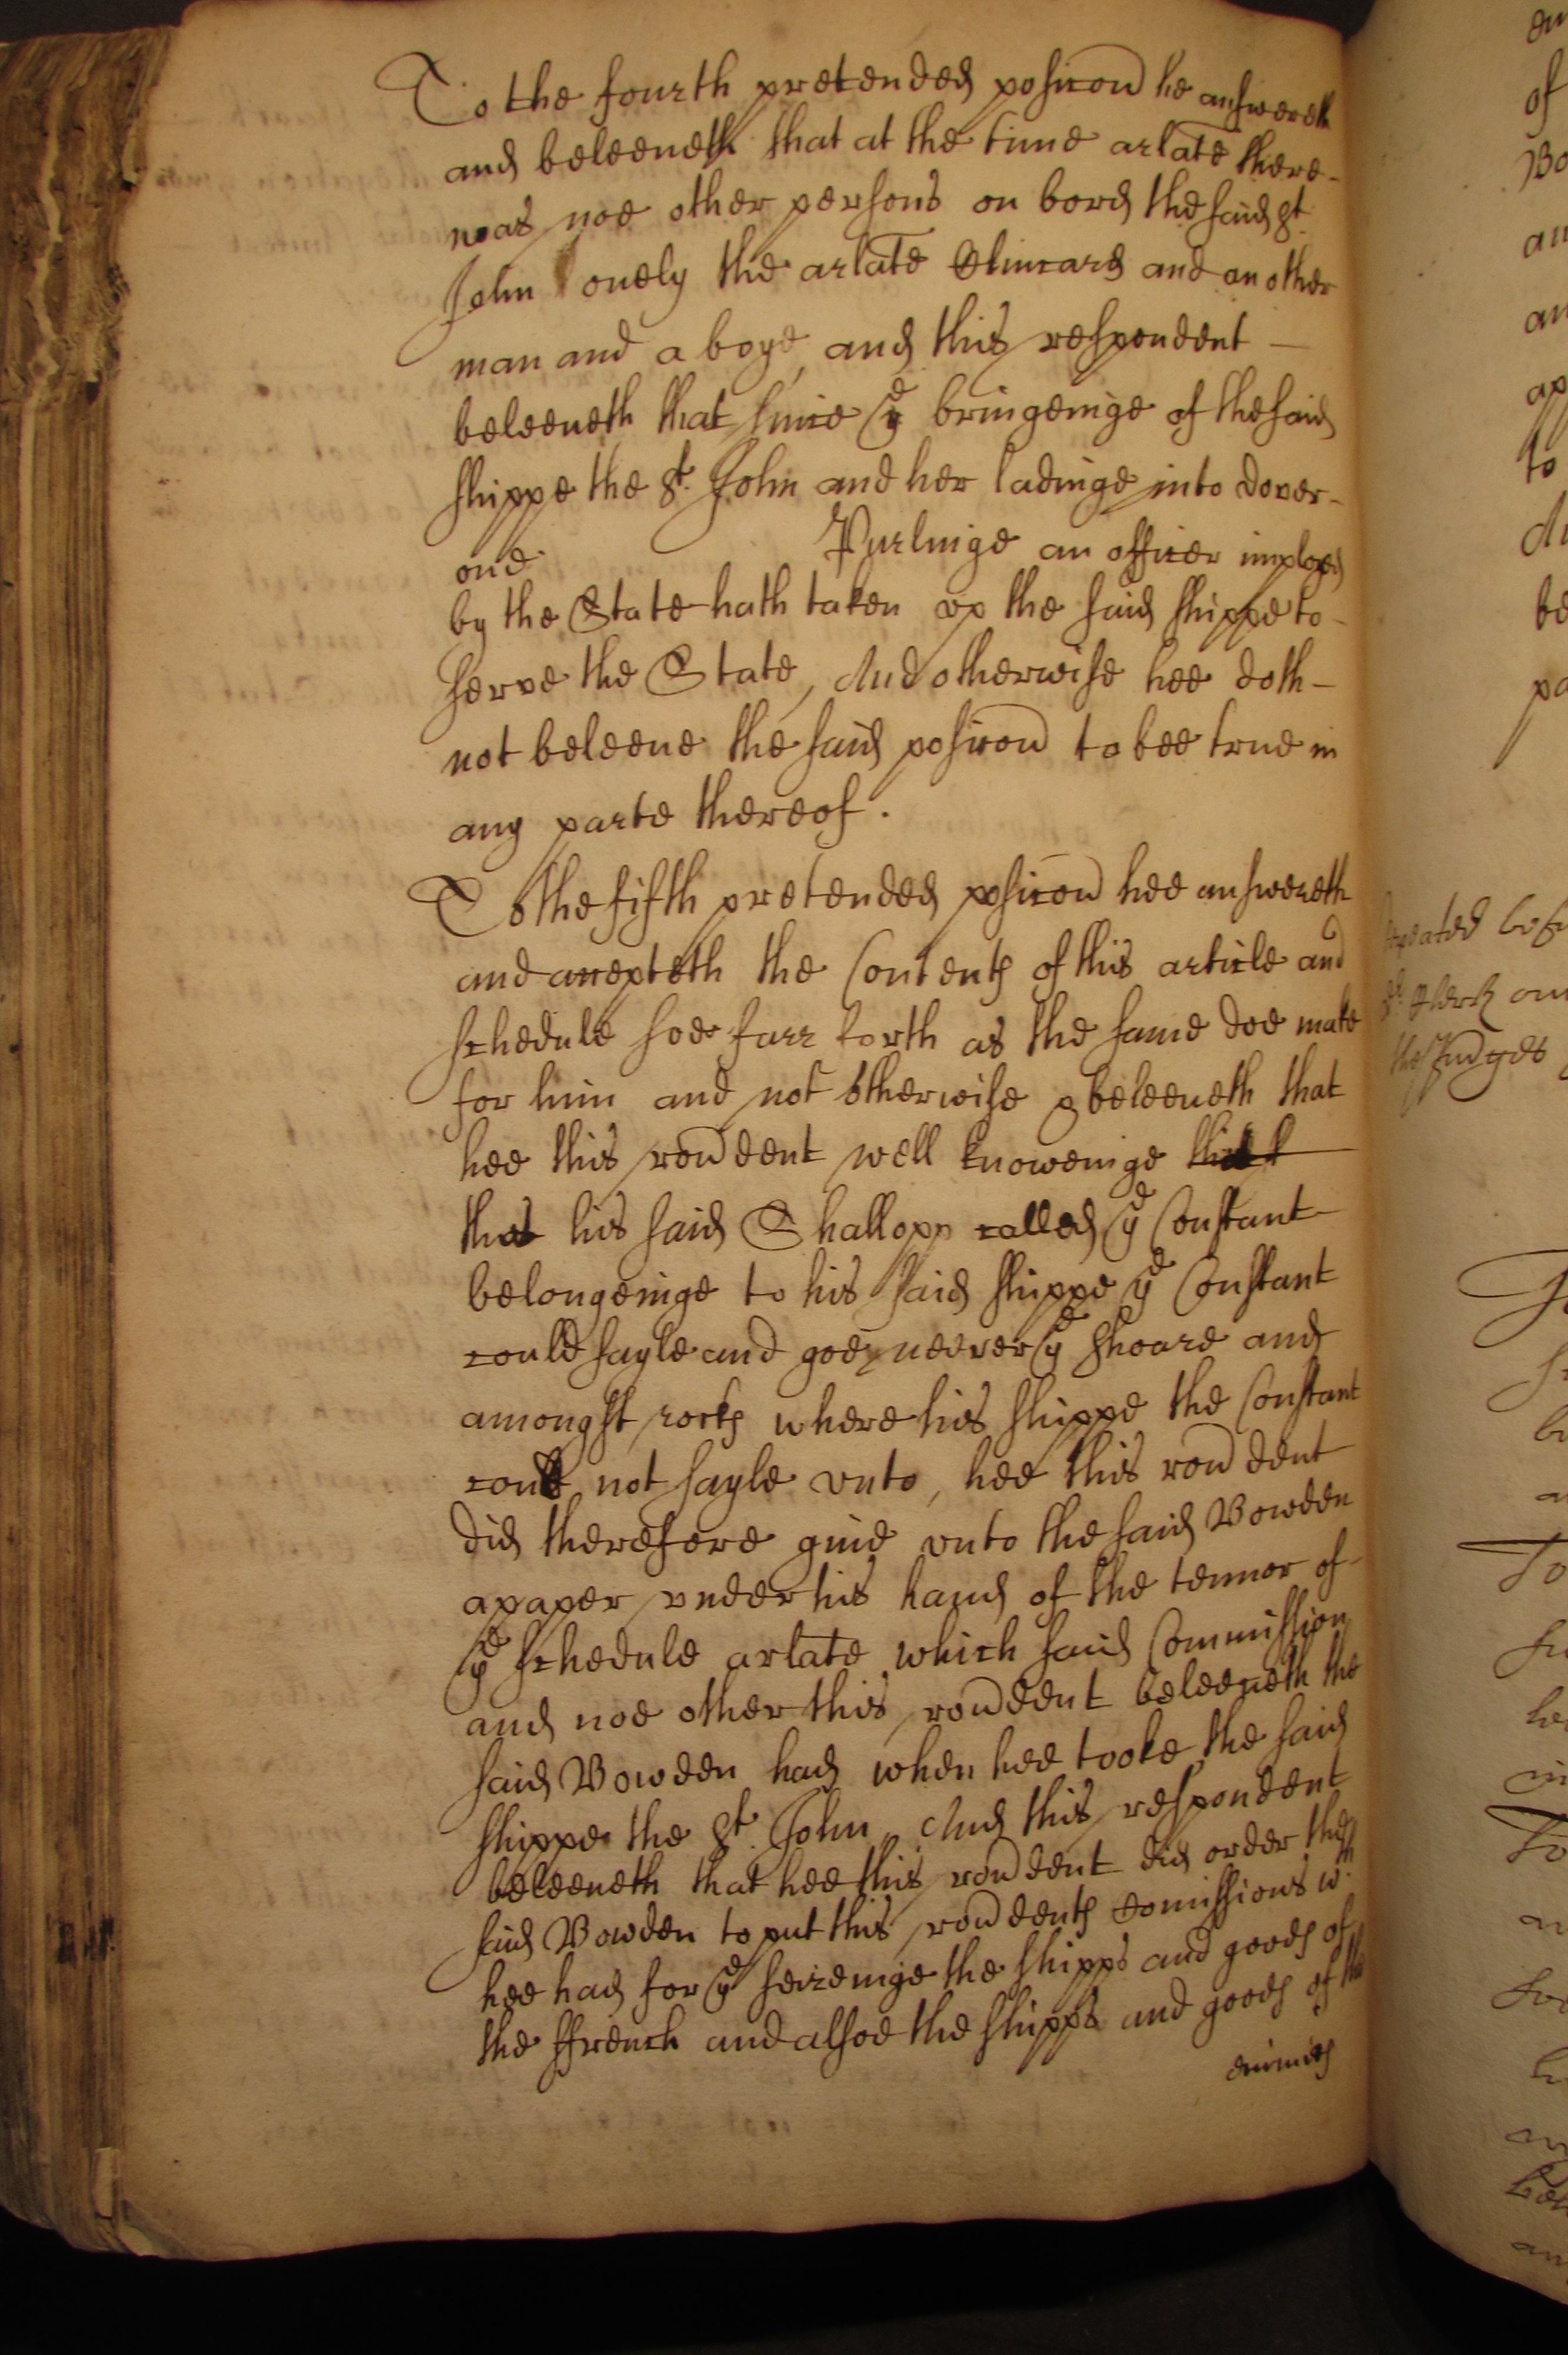 To the fourth pretended posicon he answereth
and beleeueth that at the time arlate there-
was noe other persons on bord the said St.
John onely the arlate and another
man and a boye, and this respondent -
beleeueth that since ye bringeinge of the said
shippe the St. John and her ladinge into Dover-
one Purlinge an officer imployed
by the State hath taken vp the said shippe to-
serve the State, And otherwise hee doth-
not beleeue the said posicon to bee true in
any parte thereof.
To the fifth pretended posicon hee answereth
and accepteth the Contents of this article and
schedule soe farr forth as the same doe make
for him and not otherwise & beleeueth that
hee this rondent well knoweinge
that his said Shallopp called ye Constant
belongeinge to his said shippe ye Constant
could sayle and goe neerer ye shoare and
amongst rocks where his shippe the Constant
could not sayle vnto, hee this rondent
did therefore giue vnto the said Bowden
a paper vnder his hand of the tennor of-
ye schedule arlate which said Commission
and noe other this rondent beleeueth the
said Bowden had when hee tooke the said
shippe the St. John, And this respondent
beleeueth that hee this rondent did order the
said Bowden to put this rondents comissions wth.
hee had for ye seizeinge the shipps and goods of
the ffrench and alsoe the shipps and goods of the
enimies
the Judges